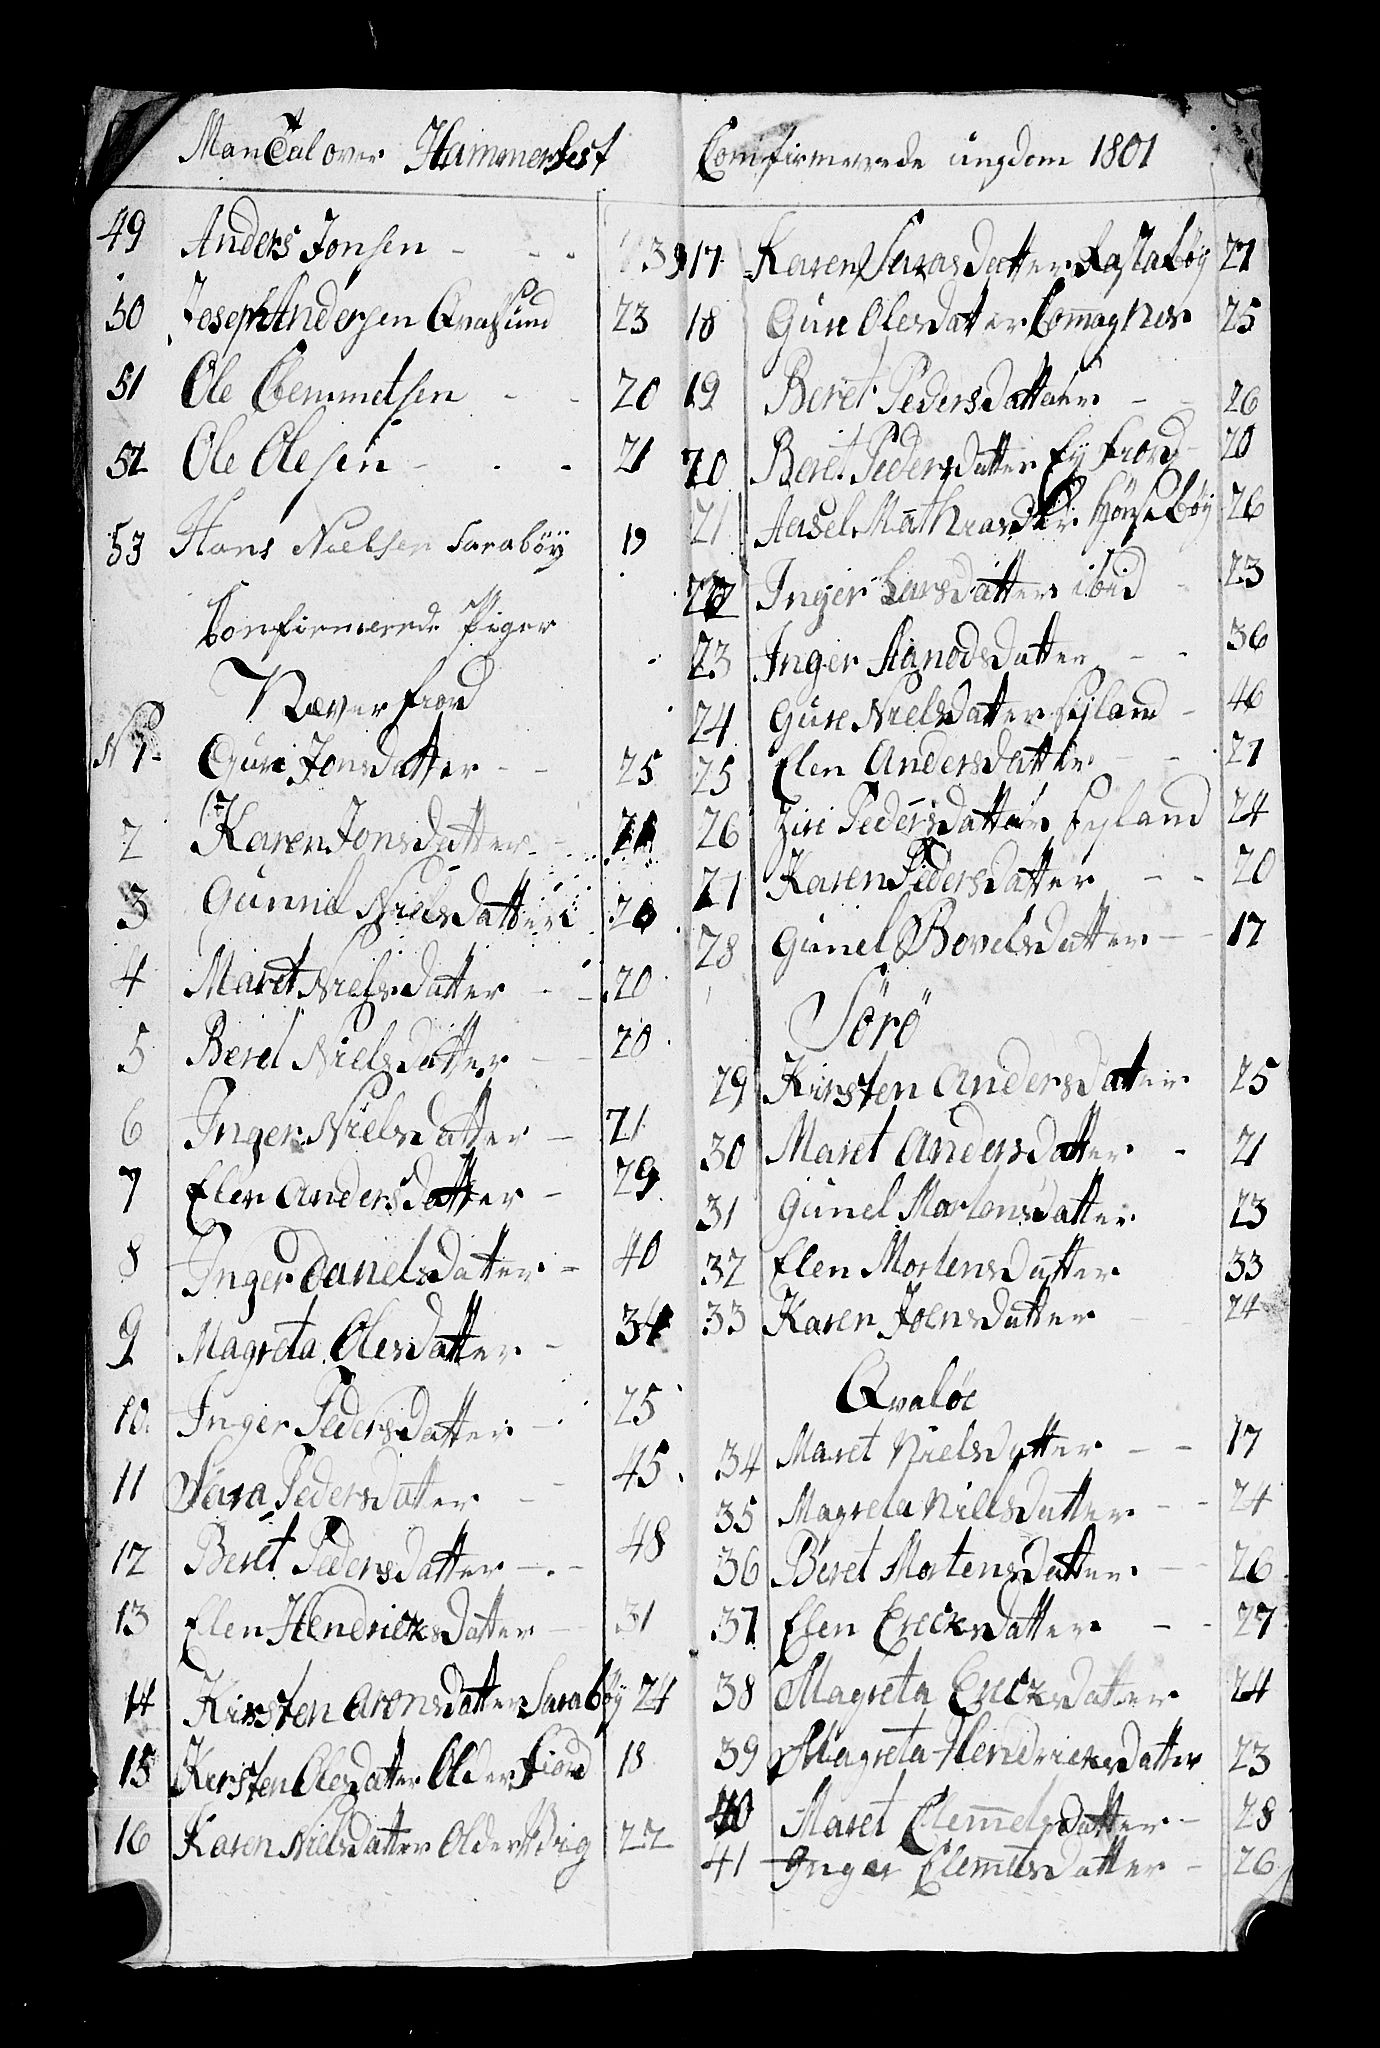 ManTal over Hammerfest
49 Anders Jonsen - - - 39
50 Joseph Andersen Qvalsund 23
51 Ole Clemmetsen - - 20
52 Ole Olesen - - - 21
53 Hans Nielsen Sarabøÿ 19
Confirmerede Piger
Næver fiord
N 1. Guri Jonsdatter - - 25
2 Karen Jonsdatter - - 21
3 Gunnil Nielsdatter 20
4 Maret Nielsdatter - - 20
5 Beret Nielsdatter - - 20
6 Inger Nielsdatter - 21
7 Elen Andersdatter - 29
8 Inger Danielsdatter - 40
9 Magreta Olesdatter - 34
10. Inger Pedersdatter - 25
11 Sara Pedersdatter - - 45
12 Beret Pedersdatter - - 48
13 Elen Hendricksdatter - 31
14 Kirsten Aronsdatter Sarabøÿ 24
15 Kersten Olesdatter Olderfiord 18
16 Karen Nielsdatter Oldervig 22
Comfirmerede ungdom 1801
17 Karen Sarasdatter 27
18 Gure Olesdatter Comagnes 25
19 Beret Pedersdatter - - 26
20 Beret Pedersdatter Eÿfiord 20
21 Aasel Mathiasdtr Hønsebøÿ 26
22 Inger Larsdatter ibid - 23
23 Inger datter - - 36
24 Gure Nielsdatter - 46
25 Elen Andersdatter - - 21
26 Ziri Pedersdatter 24
27 Karen Pedersdatter - - 20
28 Gunel Bovelsdatter - - 17
Sørø
29 Kirsten Andersdatter 25
30 Maret Andersdatter - 21
31 Gunel Mortensdatter 23
32 Elen Mortensdatter 33
33 Karen Joensdatter - - 24
Qvaløe
34 Maret Nielsdatter - - 17
35 Magreta Nielsdatter - - 24
36 Beret Mortensdatter - - 26
37 Elen Ericksdatter - - 27
38 Magreta Ericksdatter 24
39 Magreta Hendricksdatter 23
40 Maret Clem̅etsdatter - 28
41 Inger Clem̅etsdatter - 26